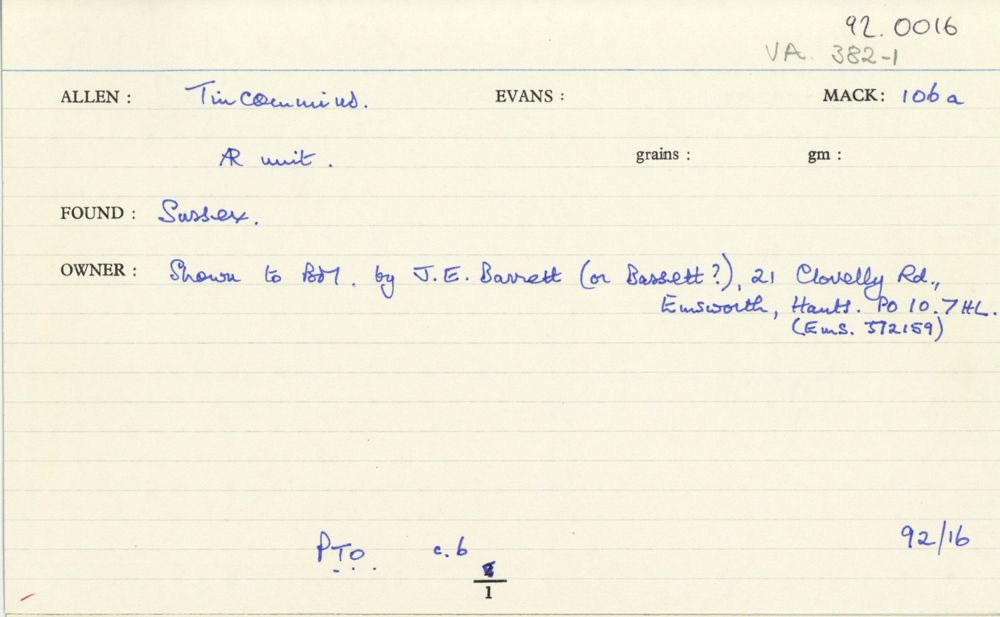 92.0016
VA. 382-1
ALLEN : Tincommius. EVANS : MACK: 106a
AR unit. grains : gm :
FOUND : Sussex.
OWNER : Shown to BM. by J.E. Barrett (or Bassett?), 21 Clovelly Rd.,
Emsworth, Hants. PO 10.7HL.
(Ems. 372159)
PTO c.b 92/16
1